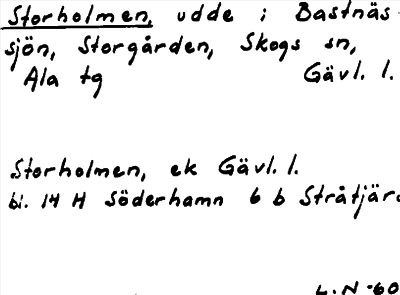 Storholmen, udde i Bastnäs-
sjön, Storgården, Skogs sn,
Ala tg Gävl. l.
Storholmen, ek Gävl. l.
bl. 14 H Söderhamn 6 b Stråtjär
L.N -60